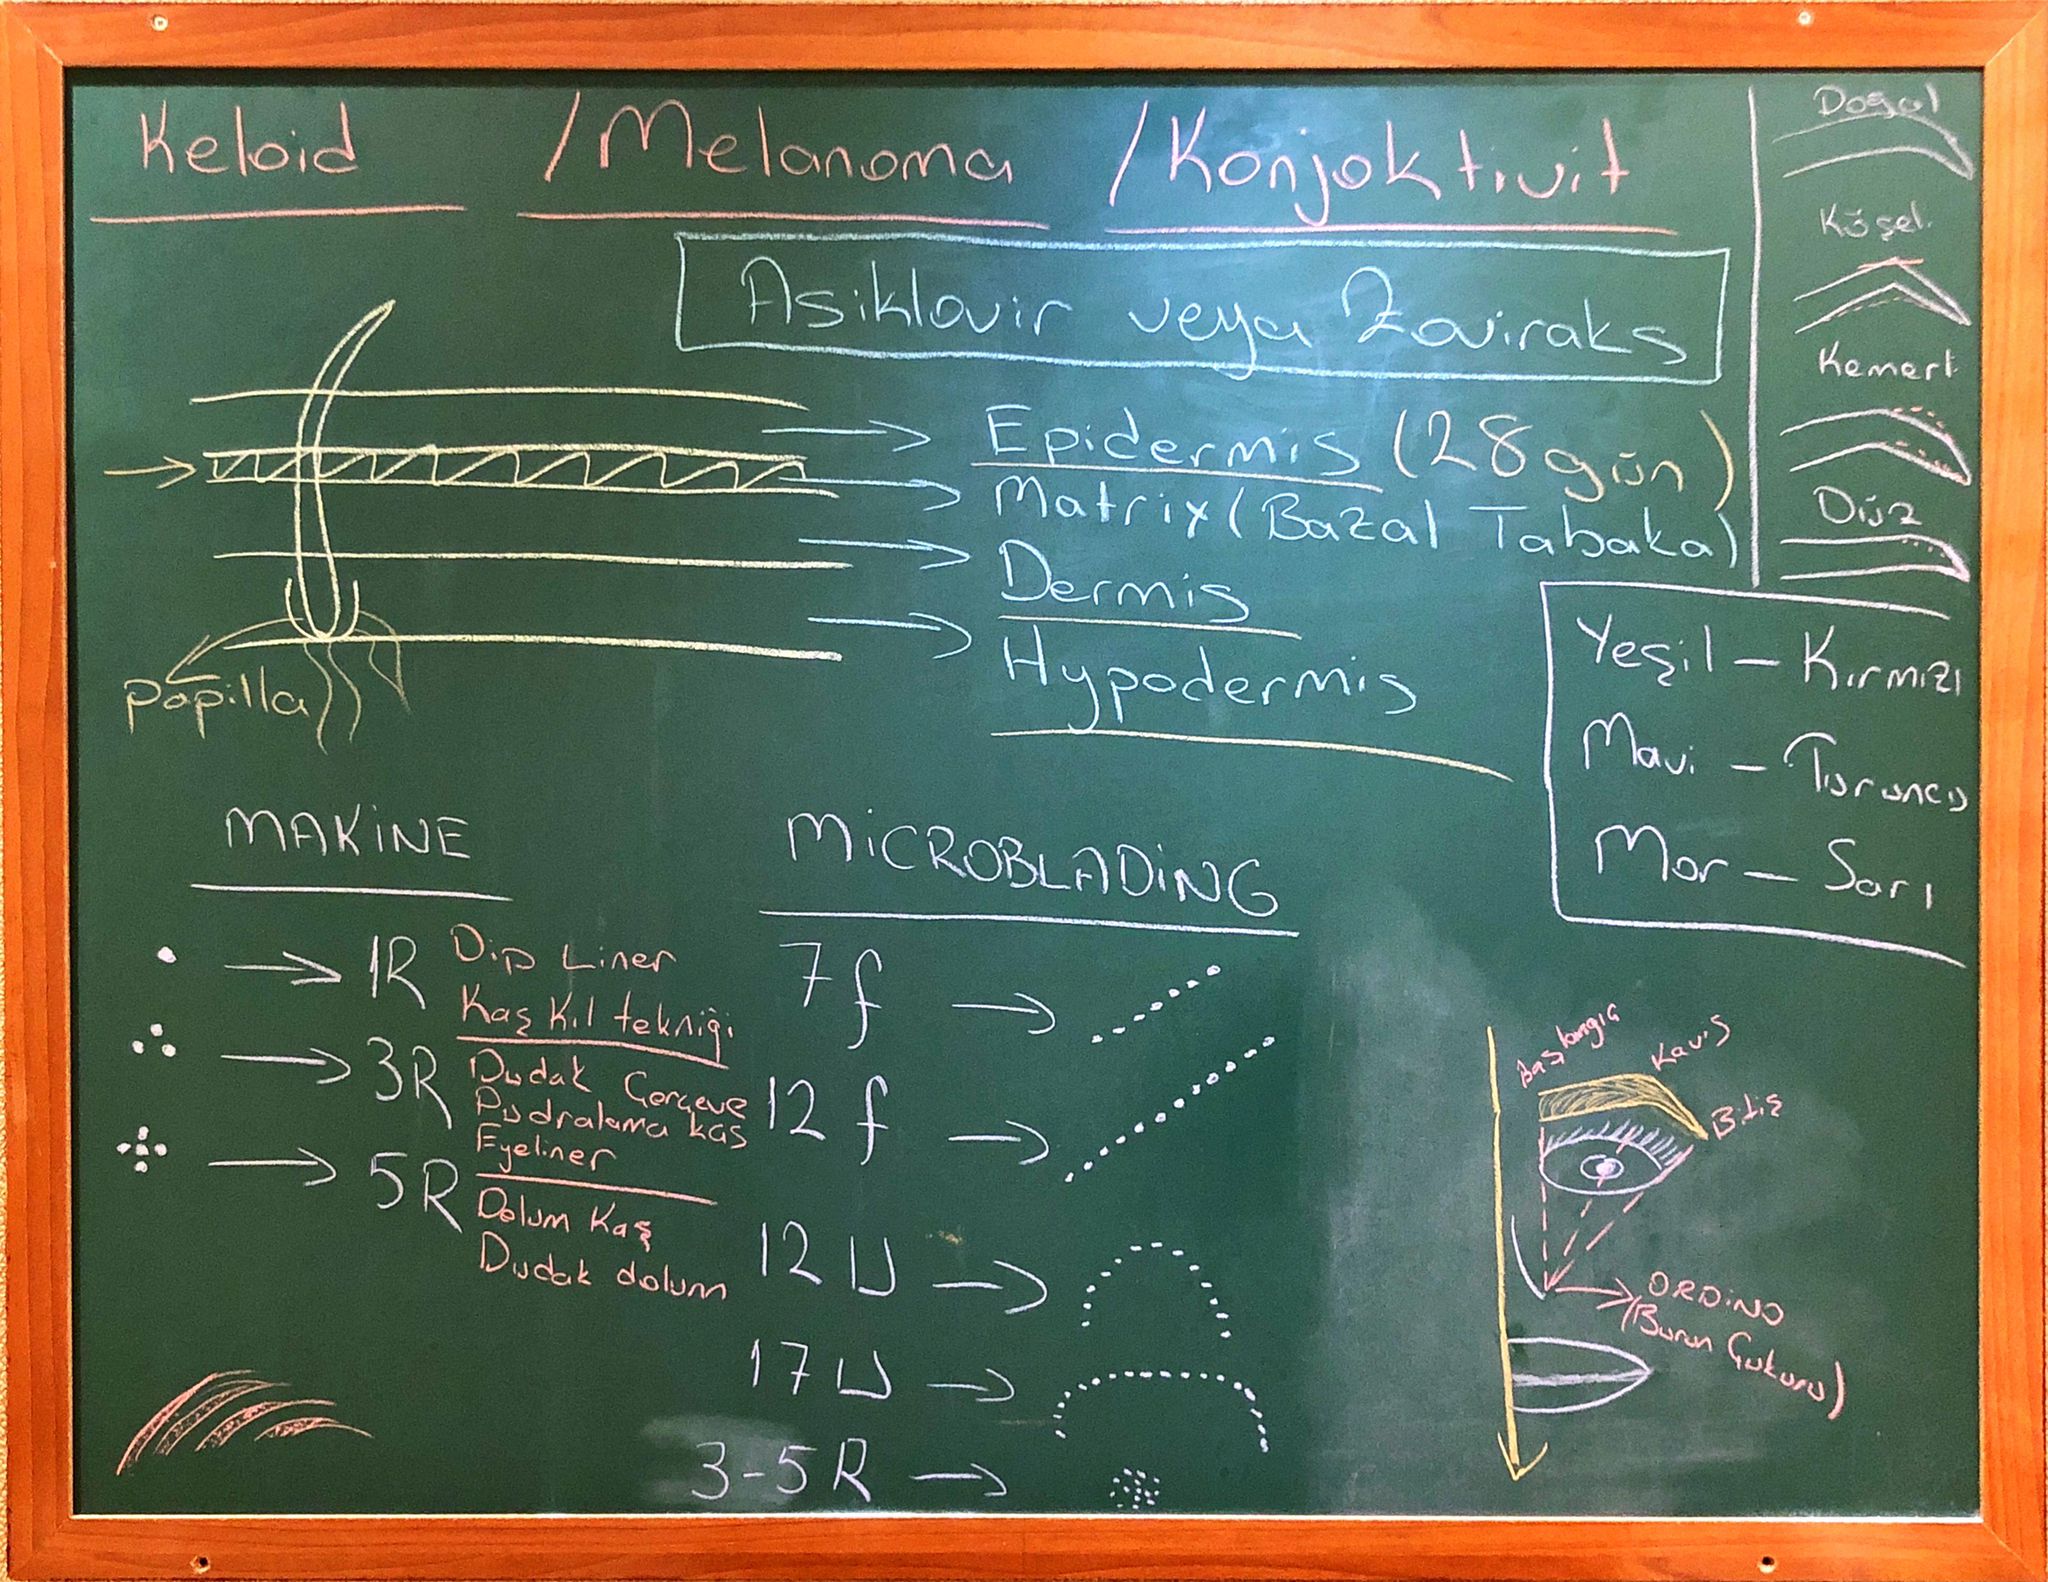 Keloid / Melanoma / Konjoktivit
Asiklovir veya Zoviraks
Epidermis (28 gün)
Matrix (Bazal Tabaka)
Dermis
Hypodermis
papilla
Doğal
Köşel.
Kemerl.
Düz
Yeşil - Kırmızı
Mavi - Turuncu
Mor - Sarı
MAKİNE
1R Dip Liner
Kaş Kıl tekniği
3R Dudak Çerçeve
Pudralama kaş
Eyeliner
5R Dolum Kaş
Dudak dolum
MiCROBLADiNG
7f
12f
12U
17U
3-5R
Başlangıç
Kavis
Bitiş
ORDiNO
(Burun Çukuru)